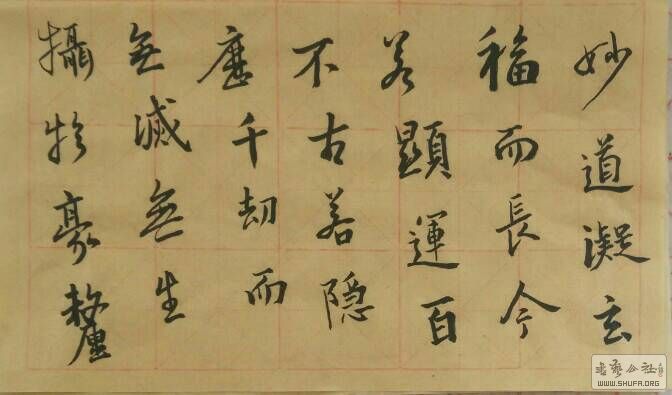 攝於豪釐
無滅無生
歷千劫而
不古若隱
若顯運百
福而長今
妙道凝玄
书艺公社
WWW.SHUFA.ORG